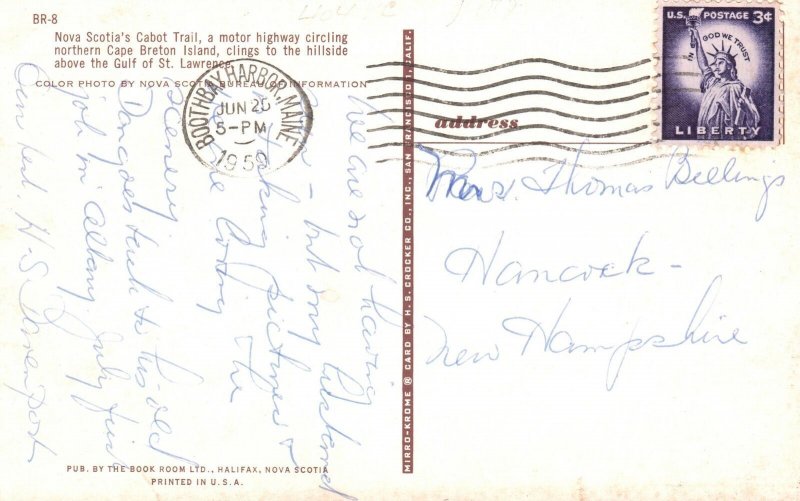 BR-8
Nova Scotia's Cabot Trail, a motor highway circling
northern Cape Breton Island, clings to the hillside
above the Gulf of St. Lawrence.
COLOR PHOTO BY NOVA SCOTIA BUREAU OF INFORMATION
BOOTHBAY HARBOR, MAINE
JUN 25
5-PM
1959
U.S. POSTAGE 3¢
IN GOD WE TRUST
LIBERTY
address
Mrs. Thomas Billings
Hancock -
New Hampshire
We are not having
rain - but my husband
taking pictures &
are loving the
scenery.
Don goes back to his old
job in Albany July first
H. S. Davenport
MIRRO-KROME ® CARD BY H. S. CROCKER CO., INC., SAN FRANCISCO 1, CALIF.
PUB. BY THE BOOK ROOM LTD., HALIFAX, NOVA SCOTIA
PRINTED IN U.S.A.